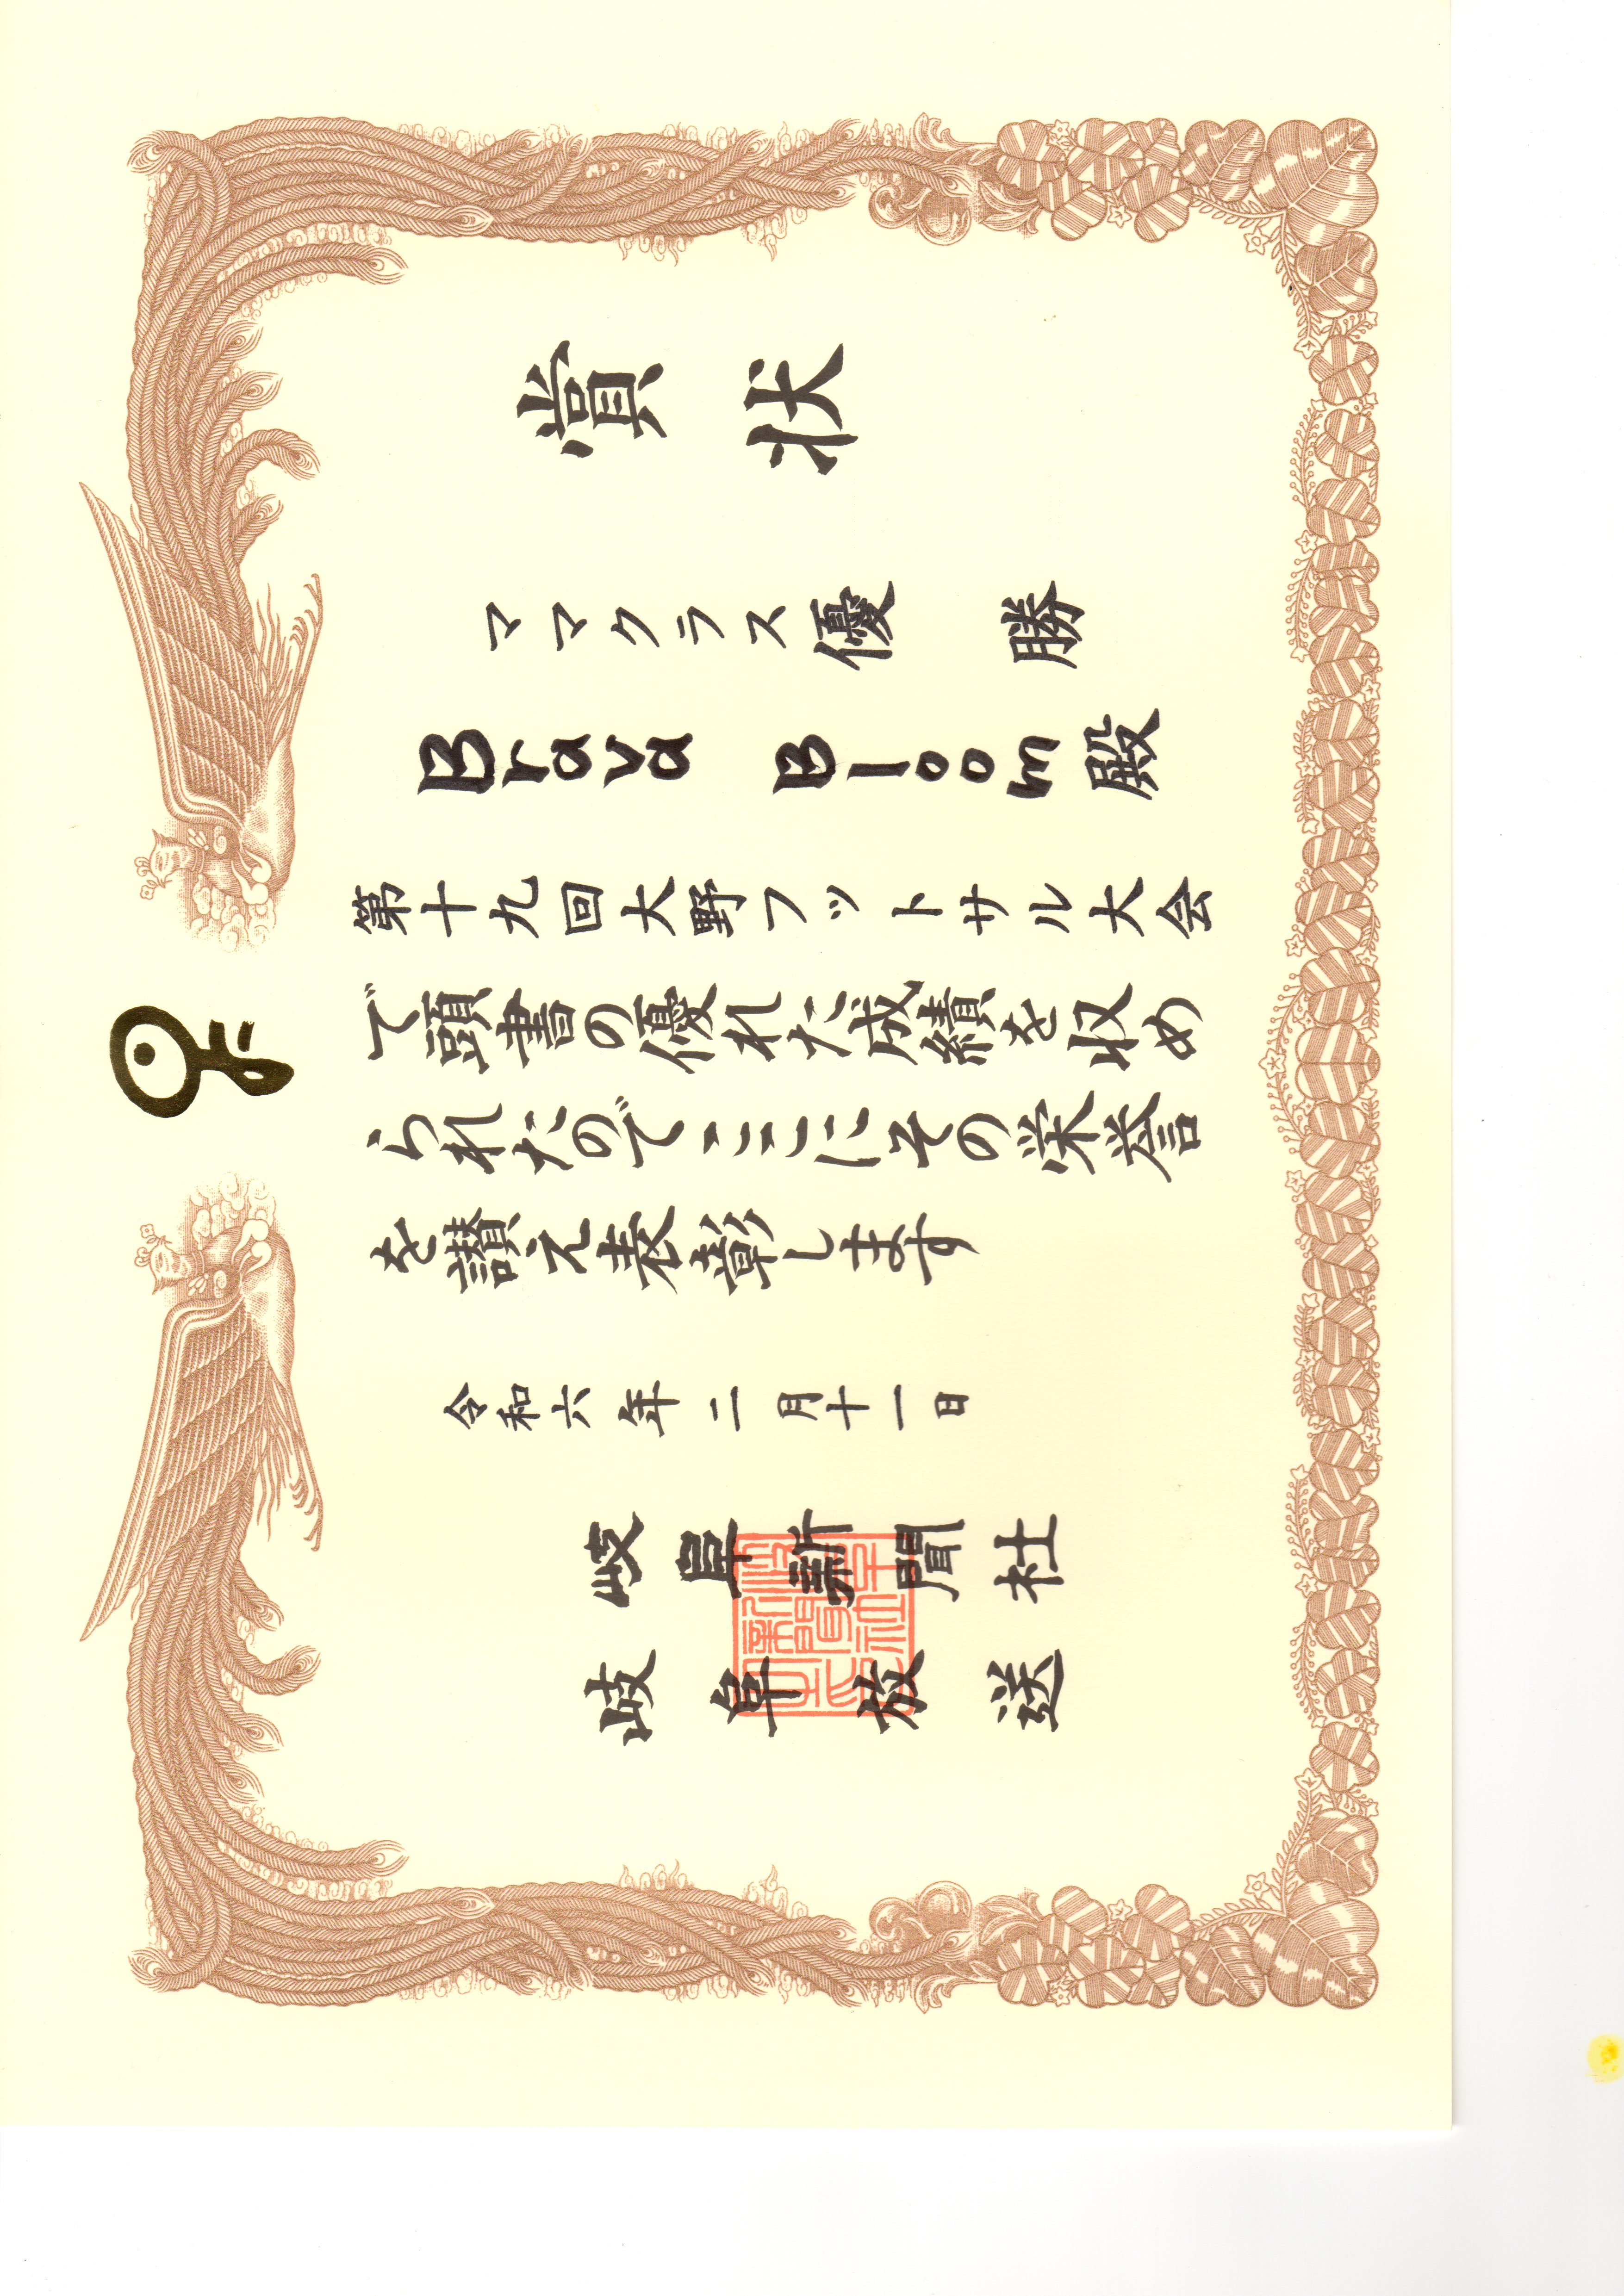 賞状
ママクラス優勝
Brava Bloom殿
第十九回大野フットサル大会
で頭書の優れた成績を収め
られたのでここにその栄誉
を讃え表彰します
令和六年二月十一日
岐阜新聞社
岐阜放送